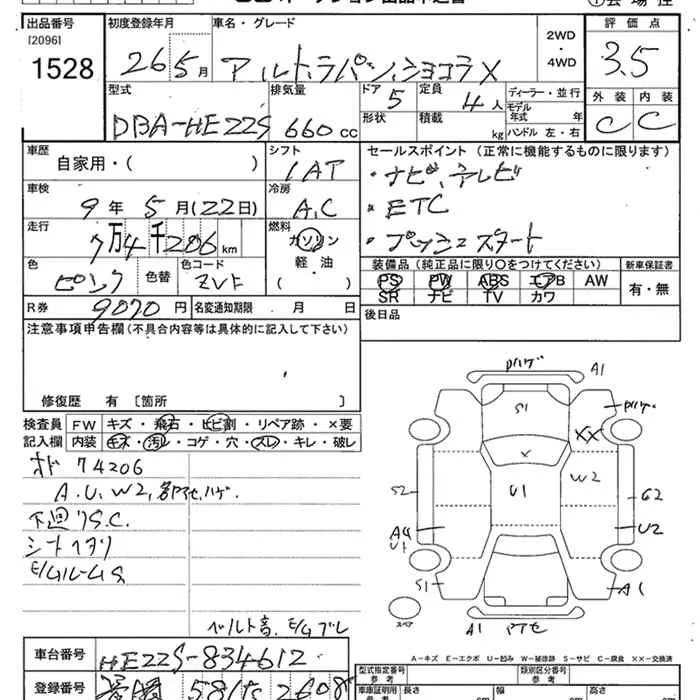 出品番号 初度登録年月 車名・グレード 評価点
[2096]
1528 26 5月 アルト.ラパン.ショコラX 2WD・4WD 3.5
型式 排気量 ドア 5 定員 4人 ディーラー・並行 外装 内装
DBA-HE22S 660cc 形状 積載 kg モデル年式 年 ハンドル 左・右 C C
車歴 シフト セールスポイント (正常に機能するものに限ります)
自家用・( ) IAT ・ナビ、テレビ
車検 冷房
9年 5月(22日) A,C ・ETC
走行 燃料
7万4千206km ガソリン ・プッシュスタート
色 色替 色コード 軽・油 装備品(純正品に限り○をつけてください) 新車保証書
ピンク ZVT ( ) PS PW ABS エアB AW 有・無
SR ナビ TV カワ
R券 9070円 名変通知期限 月 日 後日品
注意事項申告欄(不具合内容等は具体的に記入して下さい)
修復歴 有 [箇所 ]
検査員 FW キズ・飛石・ヒビ割・リペア跡・×要
記入欄 内装 キズ・汚レ・コゲ・穴・スレ・キレ・破レ
74206
A.U.W2,
下廻りS.C.
シートヘタリ
ベルト音. E/Gブレ
Pハゲ A1
S1 Pハゲ
XX
X
S2 U1 W2 G2
U2
U1
S1 A1
スペア A1
A-キズ E-エクボ U-凹み W-補修跡 S-サビ C-腐食 XX-交換済
車台番号 HE22S-834612
型式指定番号 類別区分番号
参考 参考
登録番号 581 2608
車庫証明用 長さ cm 幅 cm 高さ cm